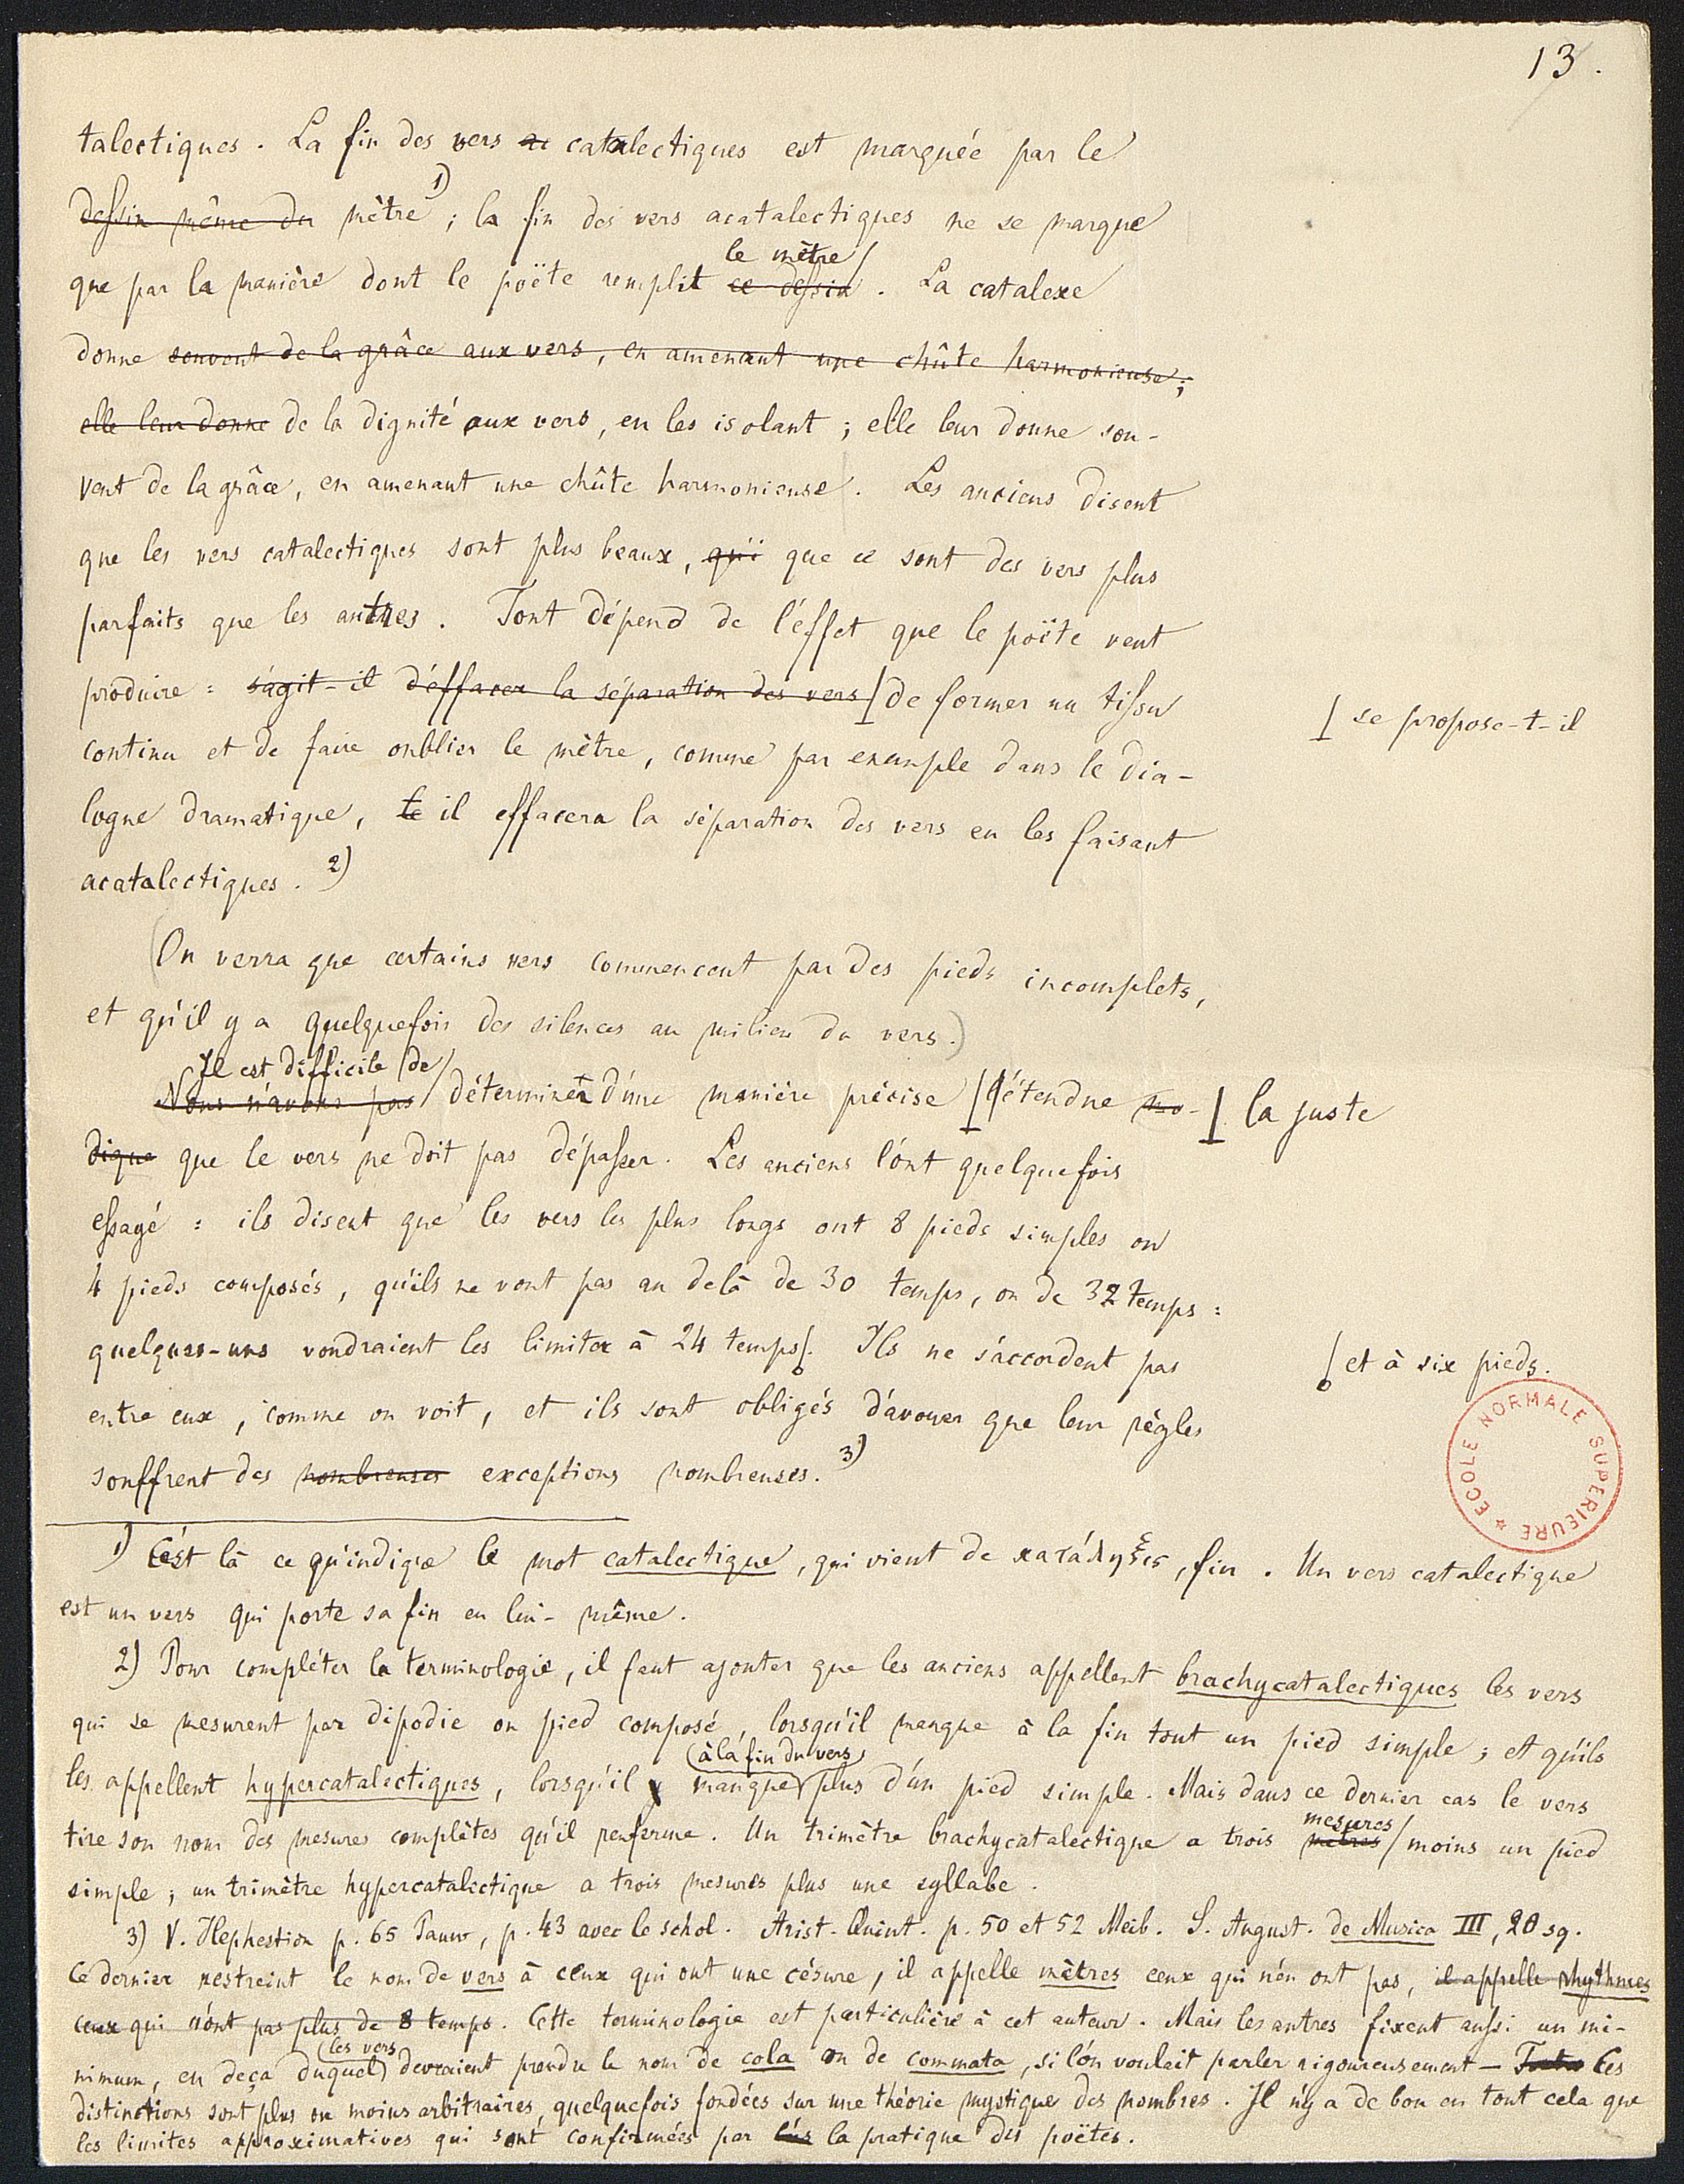 13.
talectiques. La fin des vers ac catalectiques est marquée par le
dessin même du mètre 1); la fin des vers acatalectiques ne se marque
le mètre
que par la manière dont le poëte remplit ce dessin. La catalexe
donne souvent de la grâce aux vers, en amenant une chûte harmonieuse;
elle leur donne de la dignité aux vers, en les isolant; elle leur donne sou-
vent de la grâce, en amenant une chûte harmonieuse. Les anciens disent
que les vers catalectiques sont plus beaux, qu'i que ce sont des vers plus
parfaits que les autres. Tout dépend de l'éffet que le poëte veut
produire: s'agit-il d'éffacer la séparation des vers de former un tissu
se propose-t-il
continu et de faire oublier le mètre, comme par exemple dans le dia-
logue dramatique, te il effacera la séparation des vers en les faisant
acatalectiques. 2)
(On verra que certains vers commencent par des pieds incomplets,
et qu'il y a quelquefois des silences au milieu du vers.)
Il est difficile de
Nous n'avons pas déterminer d'une manière précise l'étendue mo-
la juste
dique que le vers ne doit pas dépasser. Les anciens l'ont quelquefois
essayé: ils disent que les vers les plus longs ont 8 pieds simples ou
4 pieds composés, qu'ils ne vont pas au delà de 30 temps, ou de 32 temps:
quelques-uns voudraient les limiter à 24 temps. Ils ne s'accordent pas
et à six pieds.
entre eux, comme on voit, et ils sont obligés d'avouer que leur règles
souffrent des nombreuses exceptions nombreuses. 3)
ECOLE NORMALE SUPERIEURE
1) C'est là ce qu'indique le mot catalectique, qui vient de κατάληξις, fin. Un vers catalectique
est un vers qui porte sa fin en lui-même.
2) Pour compléter la terminologie, il faut ajouter que les anciens appellent brachycatalectiques les vers
qui se mesurent par dipodie ou pied composé, lorsqu'il manque à la fin tout un pied simple; et qu'ils
(à la fin du vers)
les appellent hypercatalectiques, lorsqu'il y manque plus d'un pied simple. Mais dans ce dernier cas le vers
mesures
tire son nom des mesures complètes qu'il renferme. Un trimètre brachycatalectique a trois mètres moins un pied
simple; un trimètre hypercatalectique a trois mesures plus une syllabe.
3) V. Hephestion p. 65 Pauw, p. 43 avec le schol. Arist. Quint. p. 50 et 52 Meib. S. August. de Musica III, 20 sq.
Ce dernier restreint le nom de vers à ceux qui ont une césure, il appelle mètres ceux qui n'en ont pas, il appelle rhythmes
ceux qui n'ont pas plus de 8 temps. Cette terminologie est particulière à cet auteur. Mais les autres fixent aussi un mi-
(les vers
nimum, en deça duquel devraient prendre le nom de cola ou de commata, si l'on voulait parler rigoureusement — Ces
distinctions sont plus ou moins arbitraires, quelquefois fondées sur une théorie mystique des nombres. Il n'y a de bon en tout cela que
les limites approximatives qui sont confirmées par la pratique des poëtes.